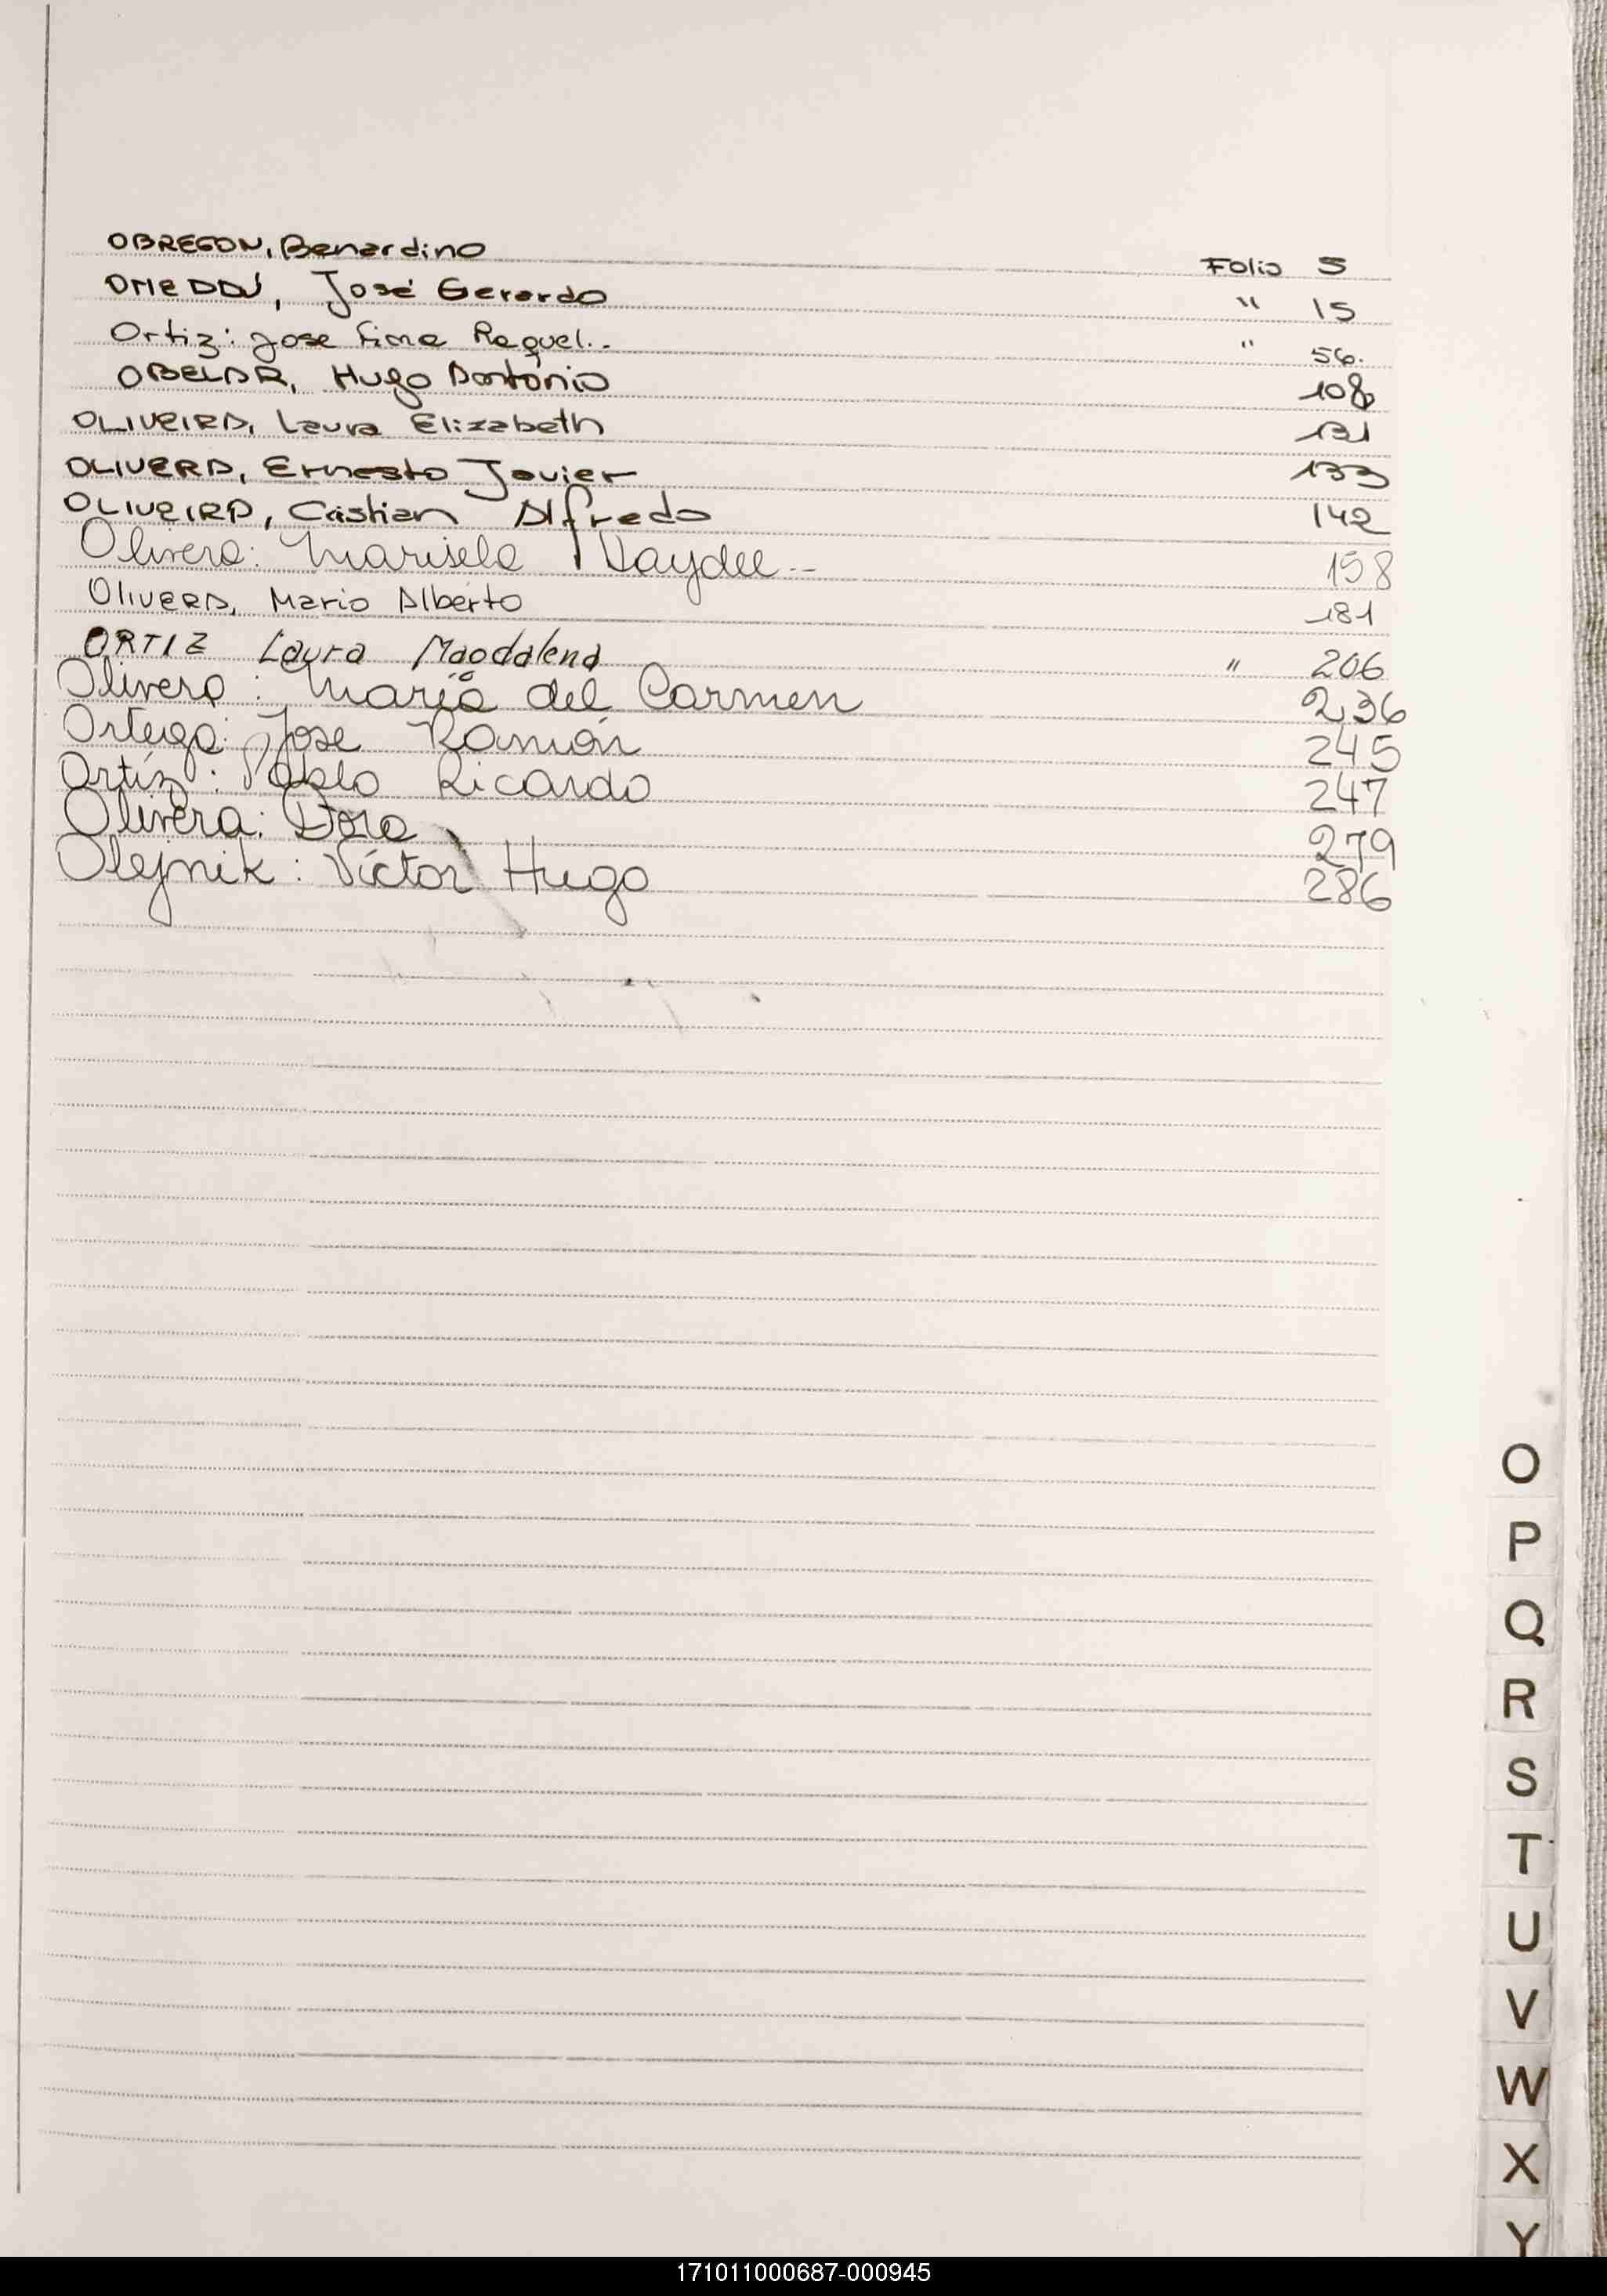 OBREGON, Benardino Folio 5
José Gerardo " 15
Ortiz: Jose fina Raquel.- " 56.
OBELAR, Hugo Antonio 108
OLIVEIRA, Laura Elizabeth 131
OLIVERA, Ernesto Javier 133
OLIVEIRA, Cristian Alfredo 142
Olivera: Marisela Haydee.-- 158
OlivERA, Mario Alberto 181
ORTIZ Laura Magdalena " 206
Olivera: María del Carmen 236
Ortega: Jose Ramón 245
Ortíz: Pablo Ricardo 247
Olivera: Dora 279
Olejnik: Víctor Hugo 286
O
P
Q
R
S
T
U
V
W
X
Y
171011000687-000945